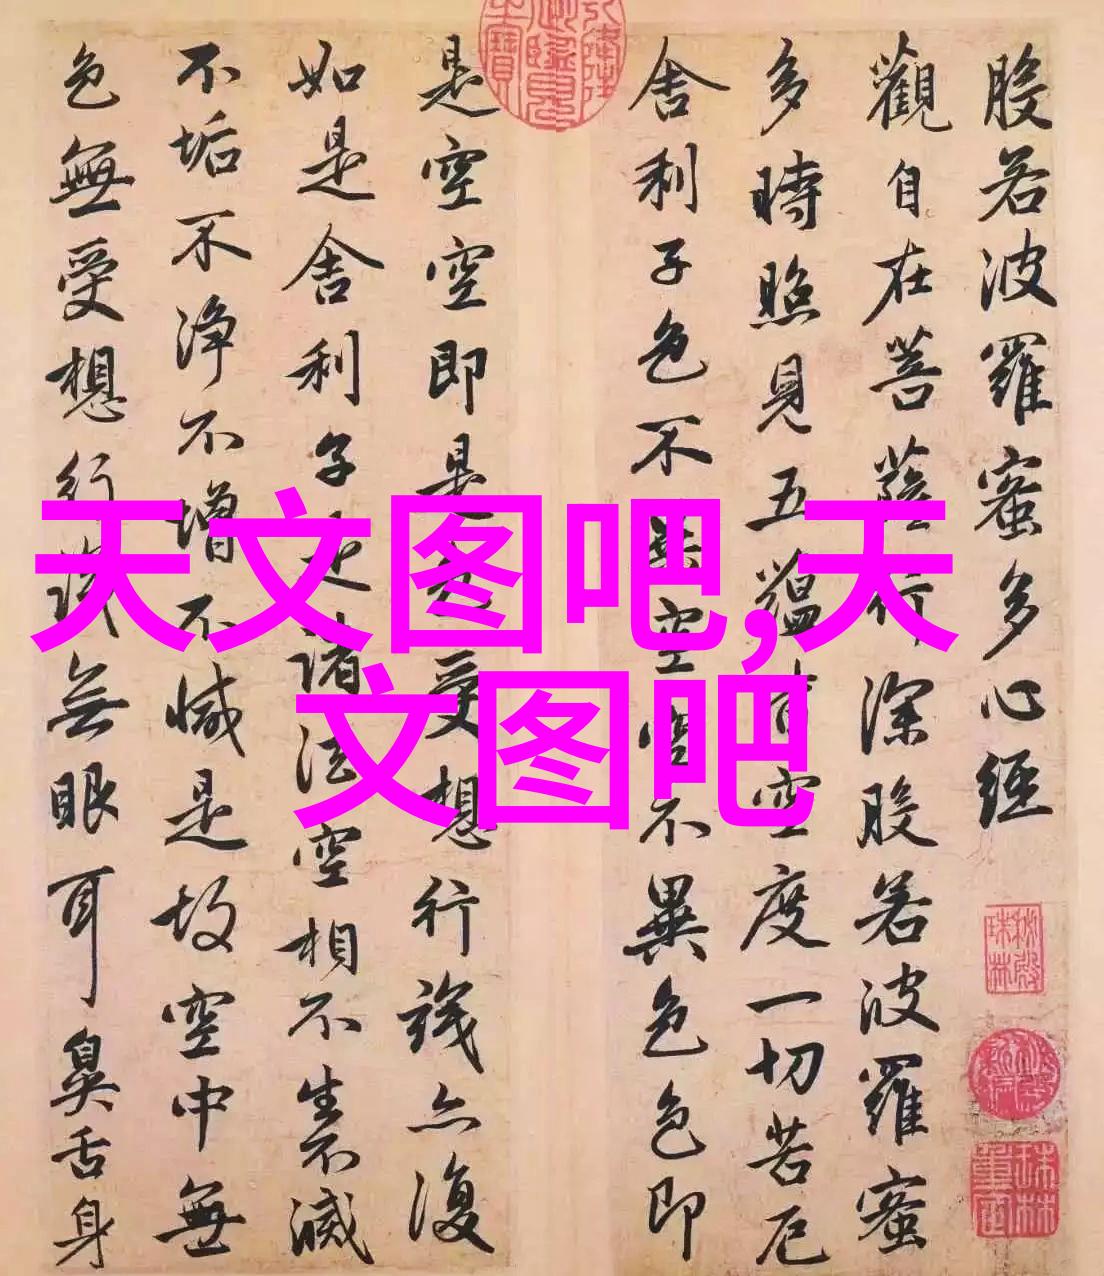 般若波羅蜜多心経
觀自在菩薩行深般若波羅蜜
多時照見五蘊皆空度一切苦厄
舍利子色不異空空不異色色即
是空空即是色受想行識亦復
如是舍利子是諸法空相不生不滅
不垢不浄不增不減是故空中無
色無受想行識無眼耳鼻舌身
天文图吧,天
文图吧